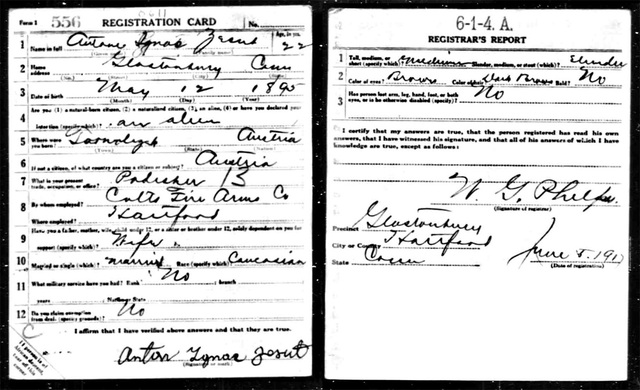 Form 1 556 REGISTRATION CARD No.
Age, in yrs.
1 Name in full Antone Ignac Zesut 22
2 Home address Glastonbury Conn
(No.) (Street) (City) (State)
3 Date of birth May 12 1895
(Month) (Day) (Year)
4 Are you (1) a natural-born citizen, (2) a naturalized citizen, (3) an alien, (4) or have you declared your intention (specify which)? an alien
5 Where were you born? Austria
(Town) (State) (Nation)
6 If not a citizen, of what country are you a citizen or subject? Austria
7 What is your present trade, occupation, or office? Polisher 13
8 By whom employed? Colts Fire Arms Co
Where employed? Hartford
9 Have you a father, mother, wife, child under 12, or a sister or brother under 12, solely dependent on you for support (specify which)? Wife
10 Married or single (which)? married Race (specify which)? Caucasian
11 What military service have you had? Rank No branch
years Nation or State
12 Do you claim exemption from draft (specify grounds)? No
I affirm that I have verified above answers and that they are true.
Anton Ignac Zesut
(Signature or mark)
6-1-4. A.
REGISTRAR'S REPORT
1 Tall, medium, or short (specify which)? Medium Slender, medium, or stout (which)? Slender
2 Color of eyes? Brown Color of hair? Dark Brown Bald? No
3 Has person lost arm, leg, hand, foot, or both eyes, or is he otherwise disabled (specify)? No
I certify that my answers are true, that the person registered has read his own answers, that I have witnessed his signature, and that all of his answers of which I have knowledge are true, except as follows:
W. G. Phelps
(Signature of registrar)
Precinct Glastonbury
City or County Hartford
State Conn
June 5. 1917
(Date of registration)